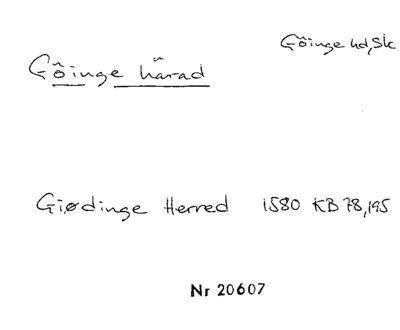 Göinge hd, Sk
Göinge härad
Giødinge Herred 1580 KB 78,195
Nr 20607